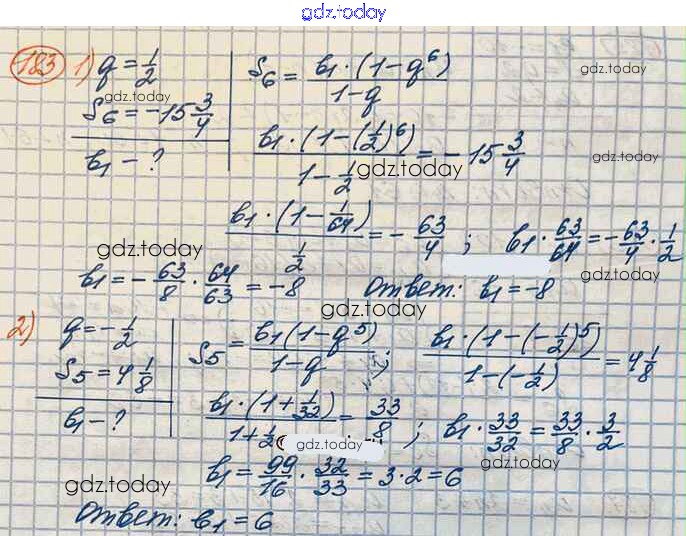 gdz.today
183 1) q = 1/2
S₆ = -15 3/4
b₁ - ?
S₆ = b₁·(1-q⁶)/(1-q)
b₁·(1-(1/2)⁶)/(1-1/2) = -15 3/4
b₁·(1-1/64)/(1/2) = -63/4 ; b₁·63/64 = -63/4·1/2
b₁ = -63/8·64/63 = -8 Ответ: b₁ = -8
2) q = -1/2
S₅ = 4 1/8
b₁ - ?
S₅ = b₁(1-q⁵)/(1-q) ; b₁·(1-(-1/2)⁵)/(1-(-1/2)) = 4 1/8
b₁·(1+1/32)/(1+1/2) = 33/8 ; b₁·33/32 = 33/8·3/2
b₁ = 99/16·32/33 = 3·2 = 6
Ответ: b₁ = 6
gdz.today
gdz.today
gdz.today
gdz.today
gdz.today
gdz.today
gdz.today
gdz.today
gdz.today
gdz.today
gdz.today